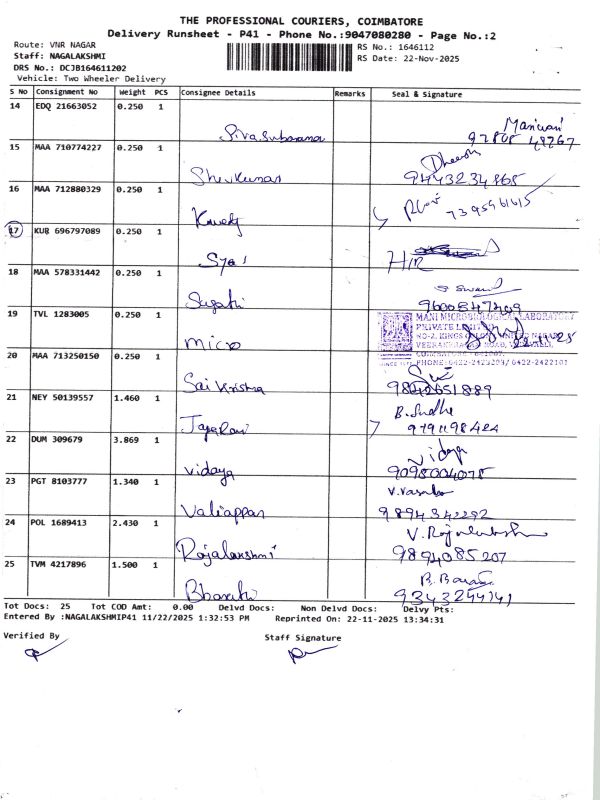 THE PROFESSIONAL COURIERS, COIMBATORE
Delivery Runsheet - P41 - Phone No.:9047080280 - Page No.:2
Route: VNR NAGAR
Staff: NAGALAKSHMI
DRS No.: DCJB164611202
Vehicle: Two Wheeler Delivery
RS No.: 1646112
RS Date: 22-Nov-2025
S No Consignment No Weight PCS Consignee Details Remarks Seal & Signature
14 EDQ 21663052 0.250 1
Sivasubramani
15 MAA 710774227 0.250 1
Shivkumar
16 MAA 712880329 0.250 1
7395961615
17 KUR 696797089 0.250 1
H/R
18 MAA 578331442 0.250 1
9600847409
19 TVL 1283005 0.250 1
micro
MANI MICROBIOLOGICAL LABORATORY
PRIVATE LIMITED
20 MAA 713250150 0.250 1
Sai Krishna
9842651889
21 NEY 50139557 1.460 1
B. Sudha
9791198484
22 DUM 309679 3.869 1
vidaya
vidya
9098004075
23 PGT 8103777 1.340 1
Valiappan
9894342292
24 POL 1689413 2.430 1
Rajalakshmi
V. Rajalakshmi
9894085207
25 TVM 4217896 1.500 1
Bharathi
9343244141
Tot Docs: 25 Tot COD Amt: 0.00 Delvd Docs: Non Delvd Docs: Delvy Pts:
Entered By :NAGALAKSHMIP41 11/22/2025 1:32:53 PM Reprinted On: 22-11-2025 13:34:31
Verified By Staff Signature